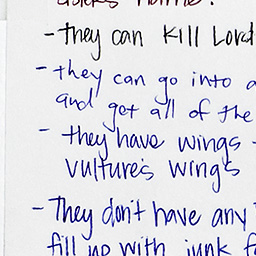 - they can kill Lord
- they can go into a
and get all of the
- they have wings -
vulture's wings
- They don't have any
fill up with junk fo